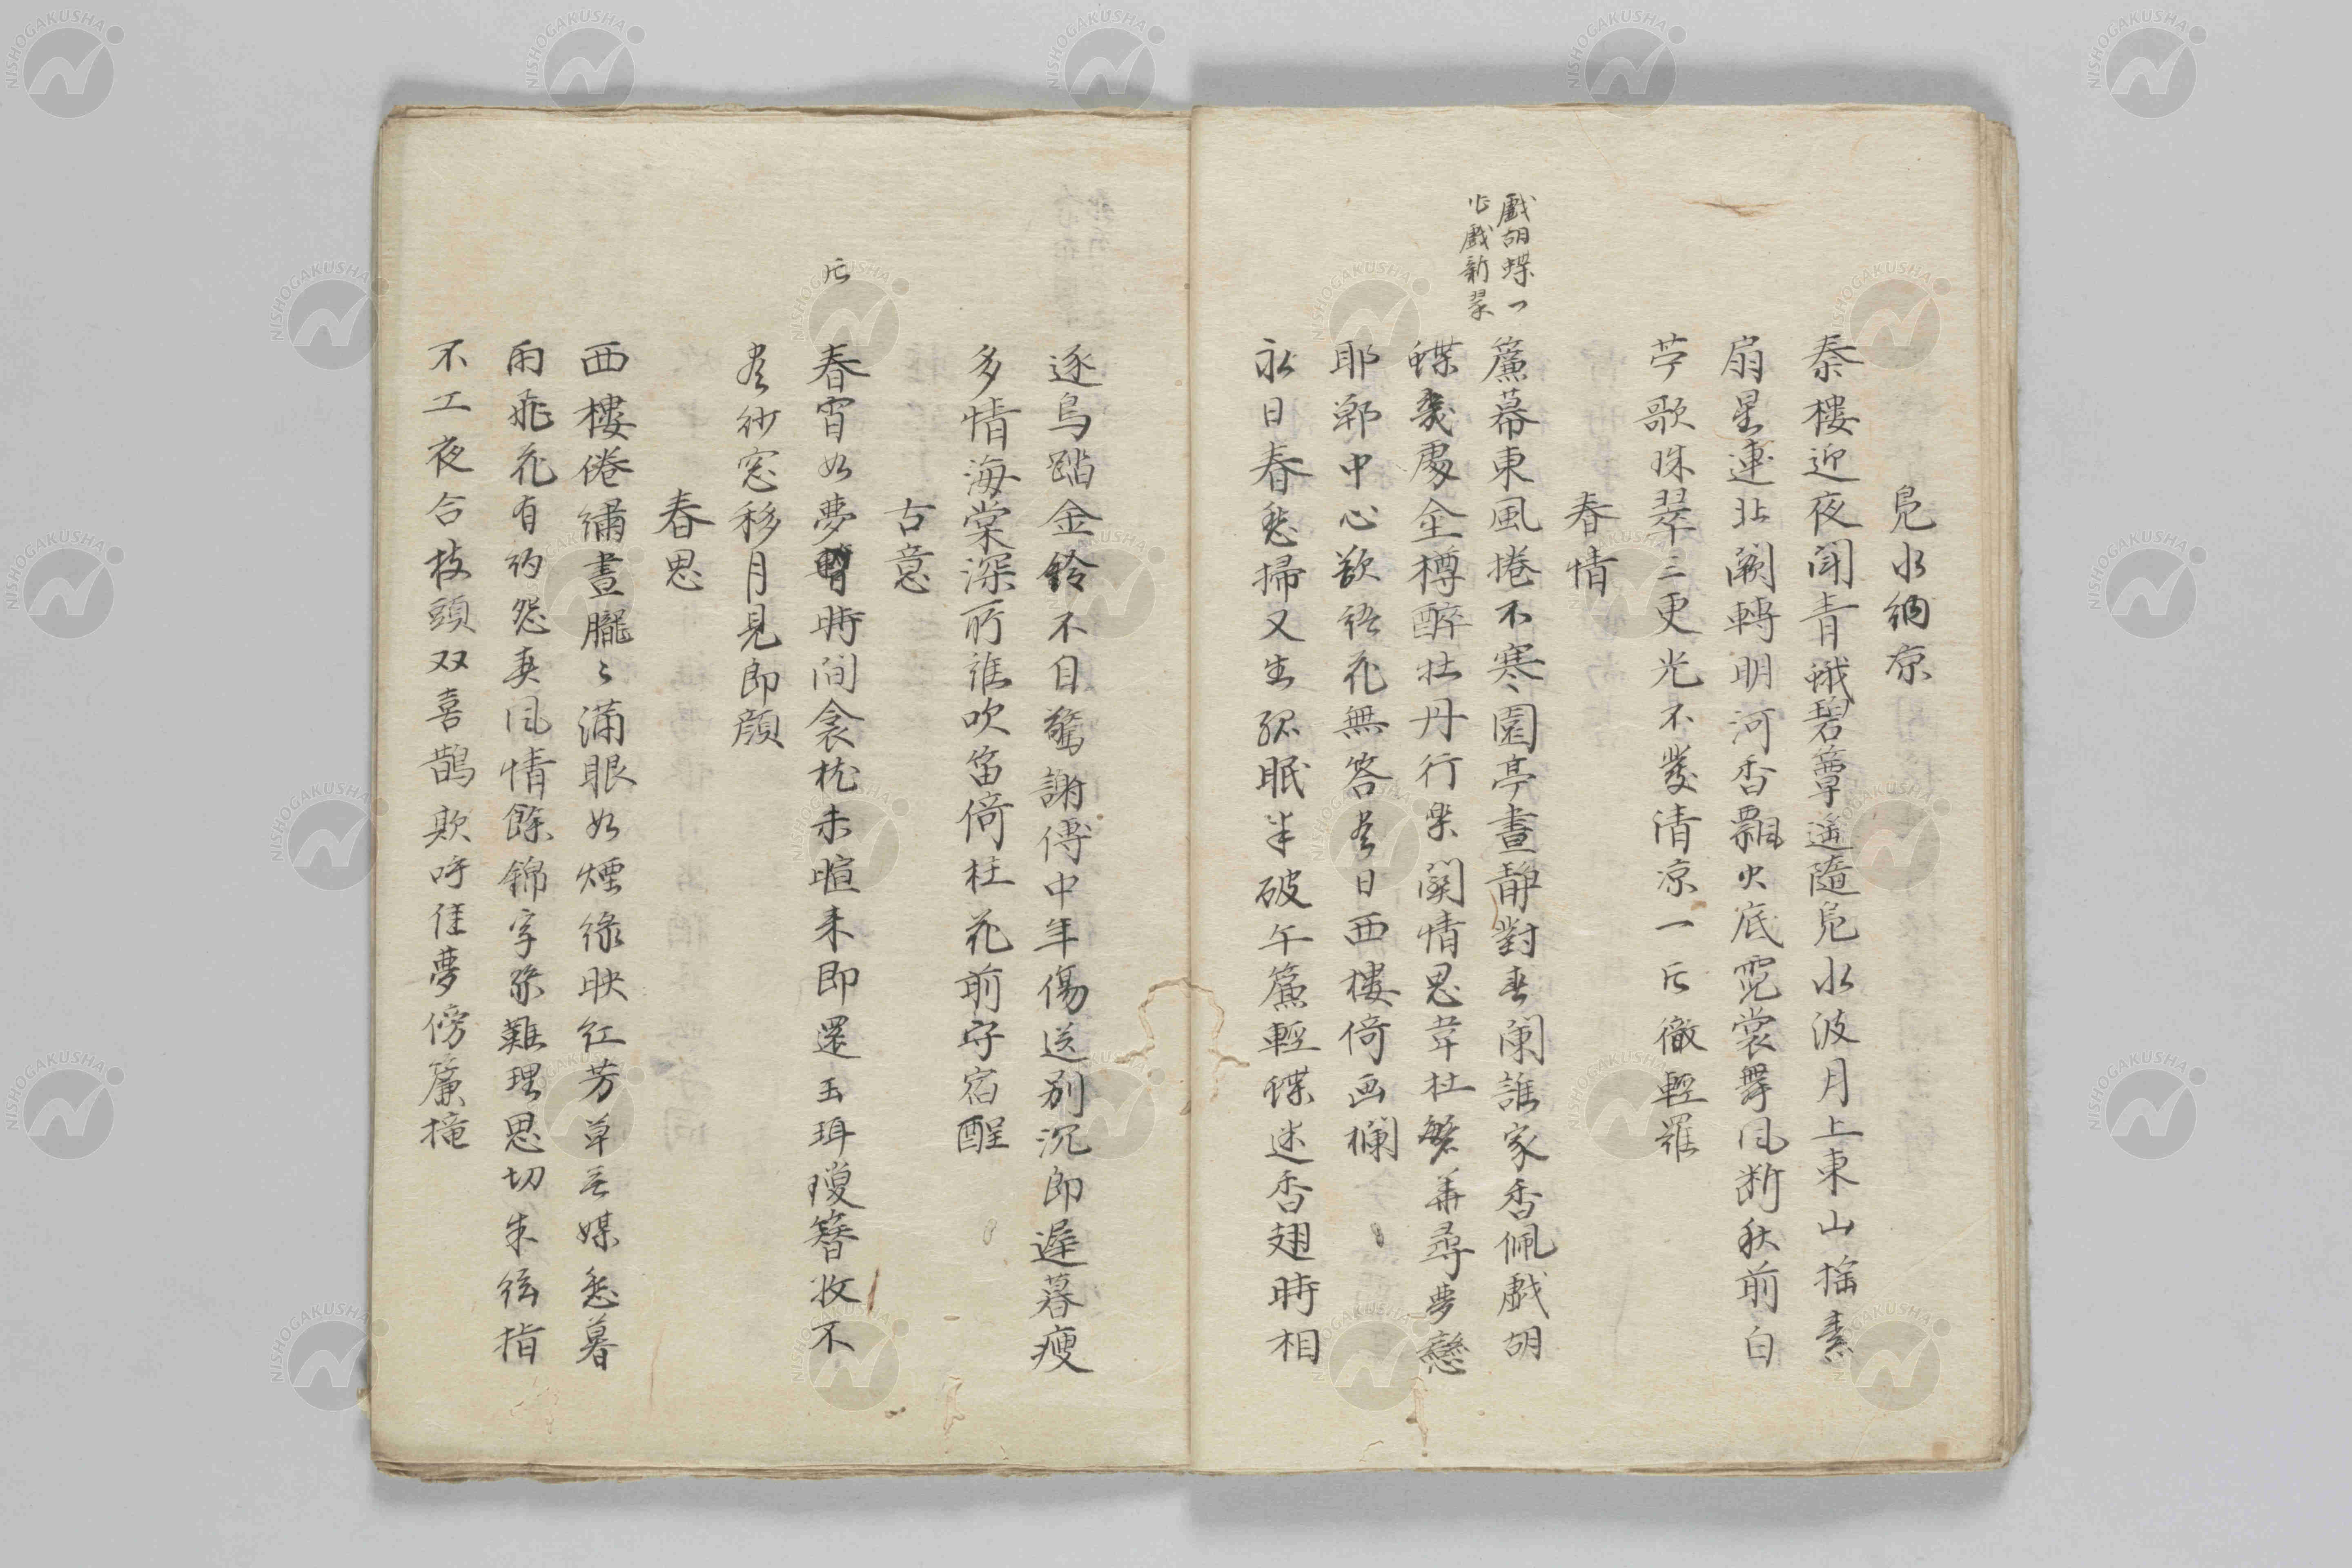 鳧水納凉
秦樓迎夜闬青蛾碧簟遙隨鳧水波月上東山搖素
扇星連北闕轉明河香飄火底霓裳舞風断秋前白
苧歌珠翠三更光不發清凉一片徹輕羅
春情
戯胡蝶一
作戯新翠
簾幕東風捲不寒園亭晝靜對春闌誰家香佩戯胡
蝶幾處金樽醉牡丹行樂関情思韋杜繁華尋夢戀
邯鄲中心欲語花無答尽日西樓倚画欄
永日春愁掃又生孤眠半破午簾輕蝶迷香翅時相
逐烏踏金鈴不自驚謝傅中年傷送別沉郎遅暮瘦
多情海棠深所誰吹笛倚杜花前守宿酲
古意
片
春宵如夢暫時間衾枕未暄来即還玉珥瓊簪收不
尽紗窓移月見郎顔
春思
西樓倦繡晝朧〻満眼如煙緑映紅芳草無媒愁暮
雨飛花有約怨春風情餘錦字殊難理思切朱絃指
不工夜合枝頭双喜鵲欺呼佳夢傍簾櫳
NISHOGAKUSHA